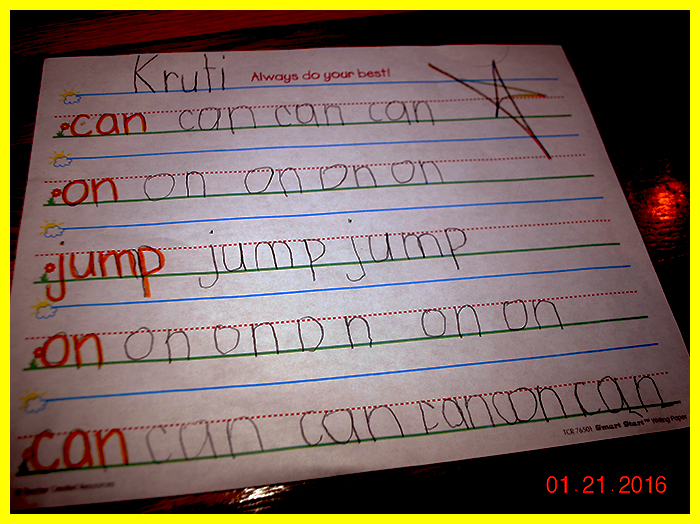 Kruti Always do your best!
can can can can
on on on on on
jump jump jump
on on on on on on
can can can can can
TCR 76501 Smart Start™ Writing Paper
© Teacher Created Resources
01.21.2016